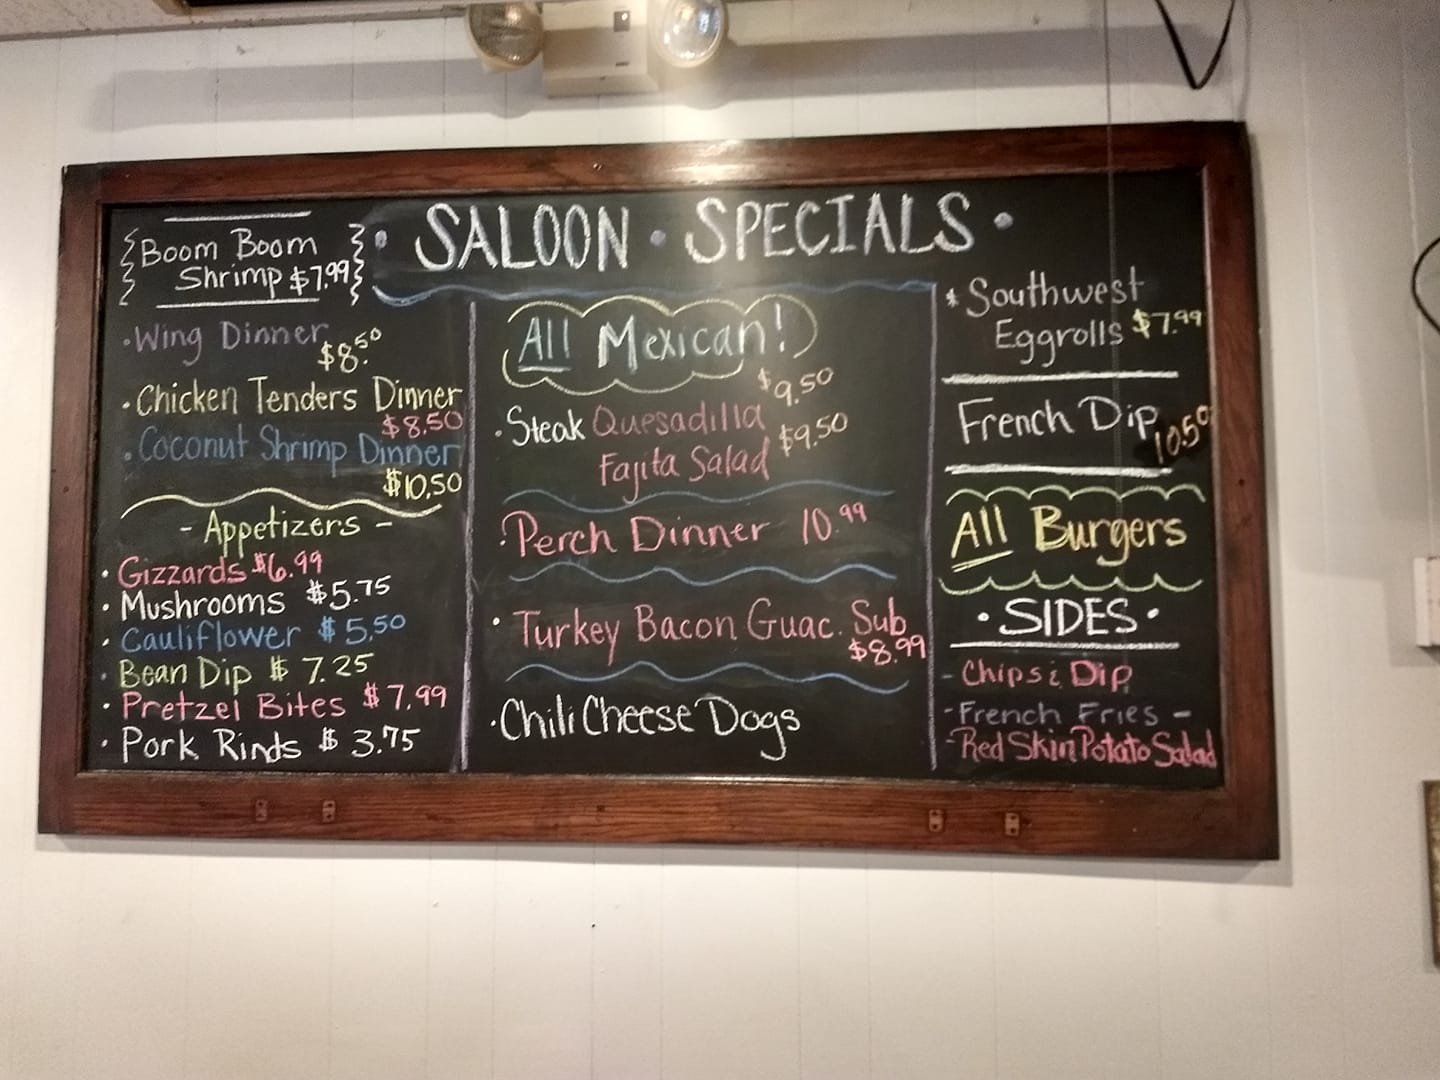 SALOON • SPECIALS •
Boom Boom
Shrimp $7.99
• Wing Dinner
$8.50
• Chicken Tenders Dinner
$8.50
• Coconut Shrimp Dinner
$10.50
- Appetizers -
• Gizzards $6.99
• Mushrooms $5.75
• Cauliflower $5.50
• Bean Dip $7.25
• Pretzel Bites $7.99
• Pork Rinds $3.75
All Mexican!
$9.50
• Steak Quesadilla
Fajita Salad $9.50
• Perch Dinner 10.99
• Turkey Bacon Guac. Sub
$8.99
• Chili Cheese Dogs
* Southwest
Eggrolls $7.99
French Dip
10.50
All Burgers
• SIDES •
- Chips & Dip
- French Fries -
- Red Skin Potato Salad